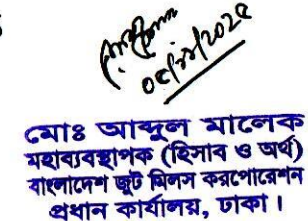 মোঃ আব্দুল মালেক
মহাব্যবস্থাপক (হিসাব ও অর্থ)
বাংলাদেশ জুট মিলস করপোরেশন
প্রধান কার্যালয়, ঢাকা।